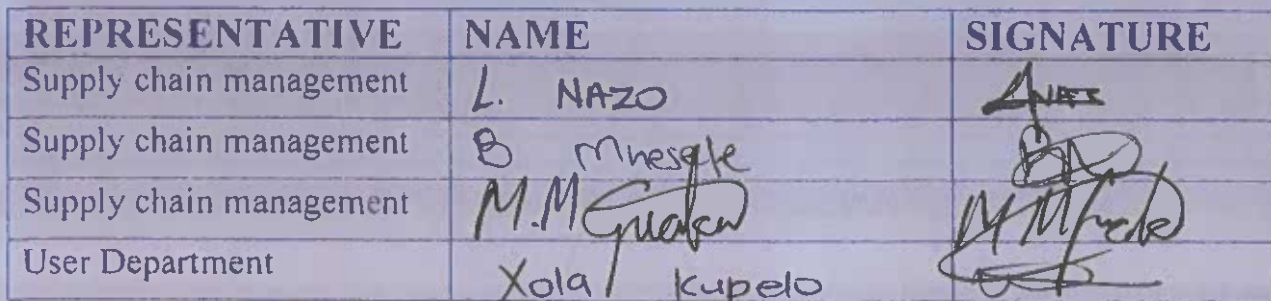 REPRESENTATIVE NAME SIGNATURE
Supply chain management L. NAZO
Supply chain management B
Supply chain management M.M
User Department Xola Kupelo